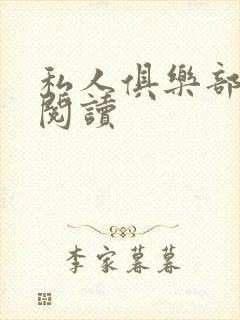 私人俱樂部
閱讀
李家暮暮